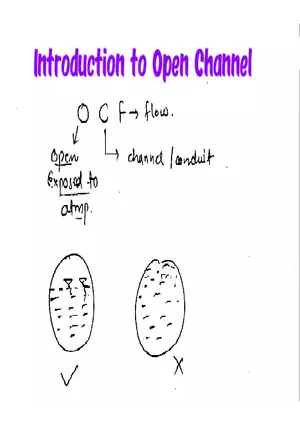 Introduction to Open Channel
O C F → flow.
open
Exposed to
atmp.
channel / conduit